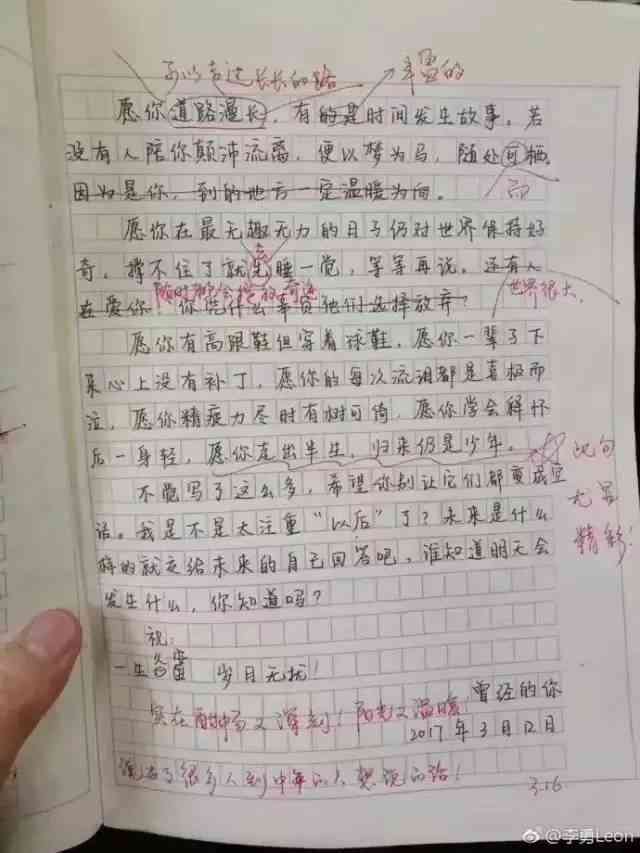 可以走过长长的路 丰富的
愿你道路漫长，有的是时间发生故事。若
没有人陪你颠沛流离，便以梦为马，随处可栖。
因为是你，到的地方一定温暖为向。 而
愿你在最无趣无力的日子仍对世界保持好
奇，撑不住了就先睡一觉，等等再说。还有人
随时都会 奇迹 世界很大
在爱你！你凭什么辜负他们选择放弃？
愿你有高跟鞋但穿着球鞋，愿你一辈子下
来心上没有补丁，愿你的每次流泪都是喜极而
泣，愿你精疲力尽时有树可倚，愿你学会释怀
后一身轻，愿你走出半生，归来仍是少年。 此句
不觉写了这么多，希望你别让它们都变成空 尤显
话。我是不是太注重“以后”了？未来是什么 精彩！
样的就交给未来的自己回答吧，谁知道明天会
发生什么，你知道吗？
祝：
一生 岁月无扰！
曾经的你
实在酣畅又深刻！阳光又温暖！
2017年3月12日
说出了很多人到中年的人想说的话！
3.16
@李勇Leon